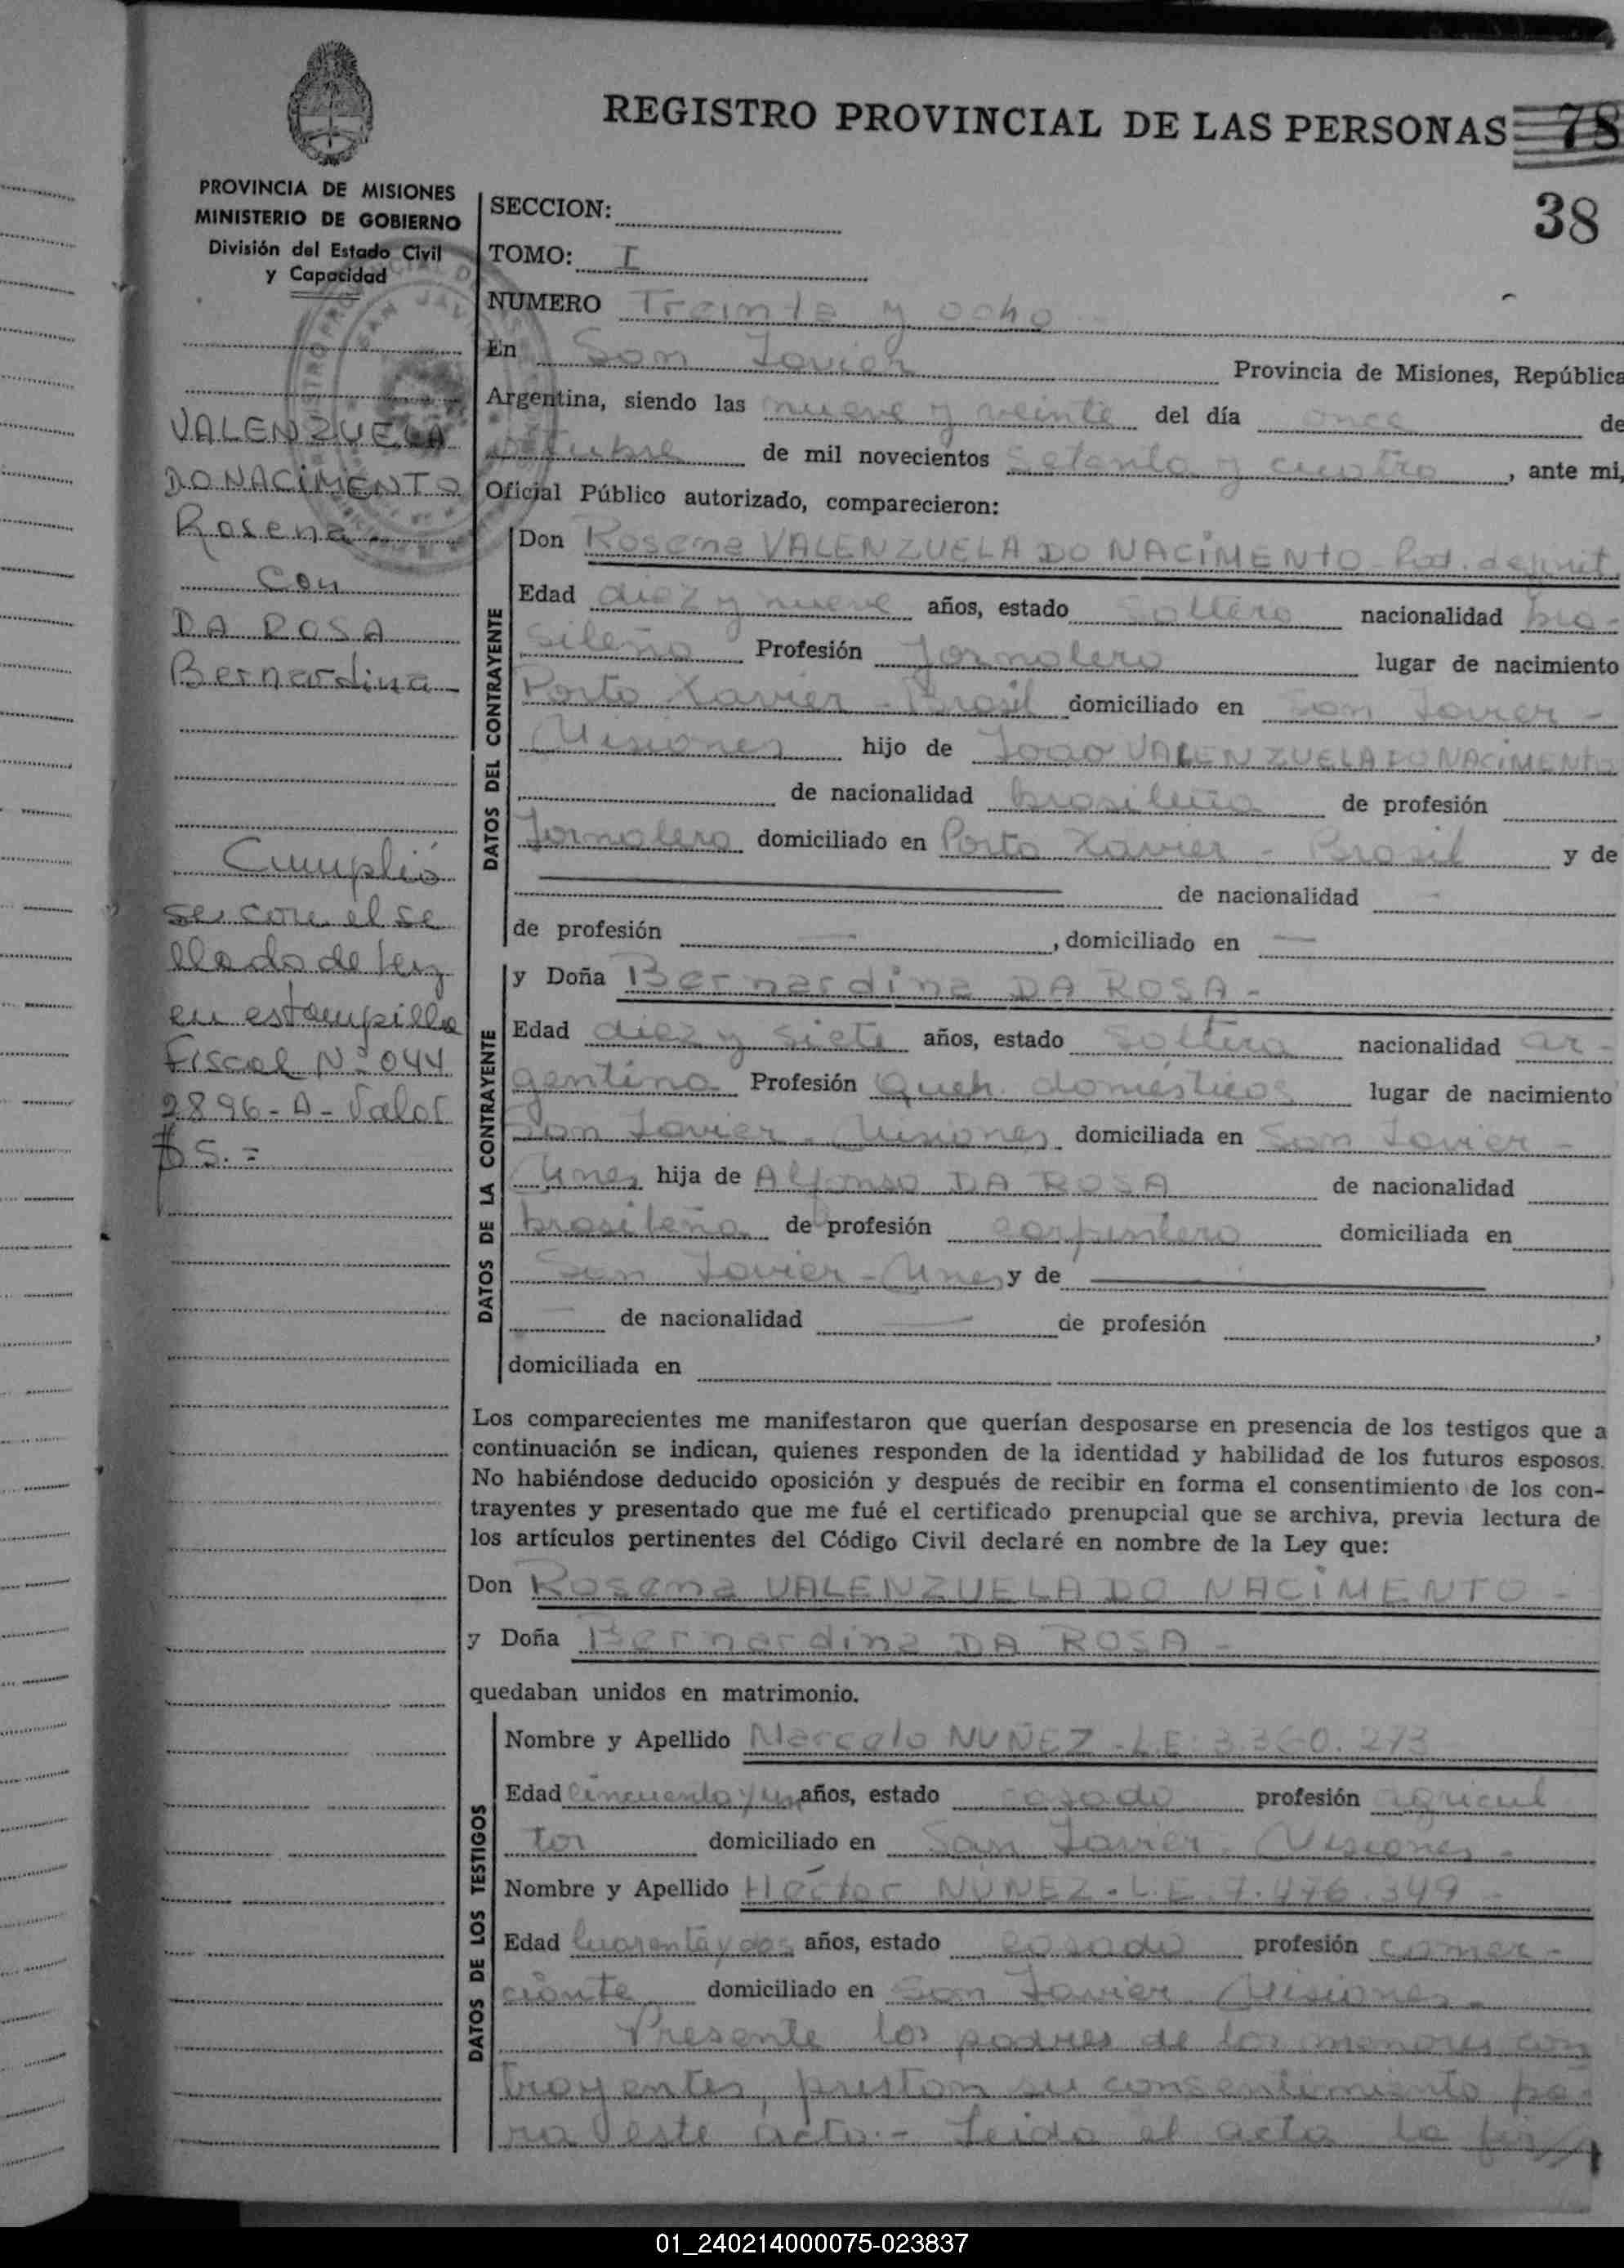 REGISTRO PROVINCIAL DE LAS PERSONAS 78
38
PROVINCIA DE MISIONES
MINISTERIO DE GOBIERNO
División del Estado Civil
y Capacidad
VALENZUELA
DO NACIMENTO
Rosena
con
DA ROSA
Bernardina
Cumplió
se con el se
llado de ley
en estampilla
Fiscal Nº 044
2896-A-Valor
$ 5.=
SECCION:
TOMO: I
NUMERO Treinta y ocho
En San Javier Provincia de Misiones, República
Argentina, siendo las nueve y veinte del día once de
octubre de mil novecientos setenta y cuatro, ante mi,
Oficial Público autorizado, comparecieron:
DATOS DEL CONTRAYENTE
Don Rosena VALENZUELA DO NACIMENTO
Edad diez y nueve años, estado soltero nacionalidad bra-
sileña Profesión Jornalero lugar de nacimiento
Porto Xavier - Brasil domiciliado en San Javier -
Misiones hijo de Joao VALENZUELA DO NACIMENTO
de nacionalidad brasileña de profesión
Jornalero domiciliado en Porto Xavier - Brasil y de
de nacionalidad
de profesión , domiciliado en
DATOS DE LA CONTRAYENTE
y Doña Bernardina DA ROSA -
Edad diez y siete años, estado soltera nacionalidad ar-
gentina Profesión Queh. domésticos lugar de nacimiento
San Javier - Misiones domiciliada en San Javier
Mnes hija de Alfonso DA ROSA de nacionalidad
brasileña de profesión carpintero domiciliada en
San Javier - Mnes y de
de nacionalidad de profesión ,
domiciliada en
Los comparecientes me manifestaron que querían desposarse en presencia de los testigos que a
continuación se indican, quienes responden de la identidad y habilidad de los futuros esposos.
No habiéndose deducido oposición y después de recibir en forma el consentimiento de los con-
trayentes y presentado que me fué el certificado prenupcial que se archiva, previa lectura de
los artículos pertinentes del Código Civil declaré en nombre de la Ley que:
Don Rosena VALENZUELA DO NACIMENTO -
y Doña Bernardina DA ROSA -
quedaban unidos en matrimonio.
DATOS DE LOS TESTIGOS
Nombre y Apellido Marcelo NUÑEZ - L.E: 3.360.273
Edad cincuenta y un años, estado casado profesión agricul
tor domiciliado en San Javier - Misiones -
Nombre y Apellido Héctor NUÑEZ - L.E. 7.476.349 -
Edad cuarenta y dos años, estado casado profesión comer-
ciante domiciliado en San Javier - Misiones -
Presente los padres de los menores con
trayentes, prestan su consentimiento pa-
ra este acto.- Leida el acta la fir
01_240214000075-023837